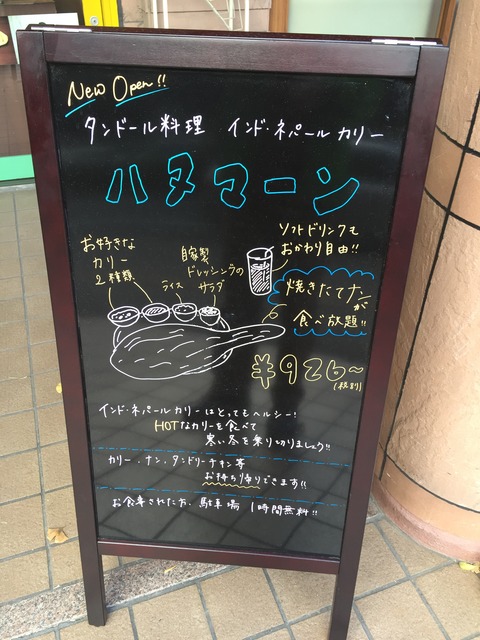 New Open!!
タンドール料理 インド・ネパール カリー
ハヌマーン
ソフトドリンクも
おかわり自由!!
お好きな
カリー
2種類
自家製
ドレッシングの
サラダ
ライス
焼きたてナンが
食べ放題!!
¥926~
(税別)
インド・ネパールカリーはとってもヘルシー!
HOTなカリーを食べて
寒い冬を乗り切りましょう!!
カリー、ナン、タンドリーチキン等
お持ち帰りできます!!
お食事された方、駐車場1時間無料!!